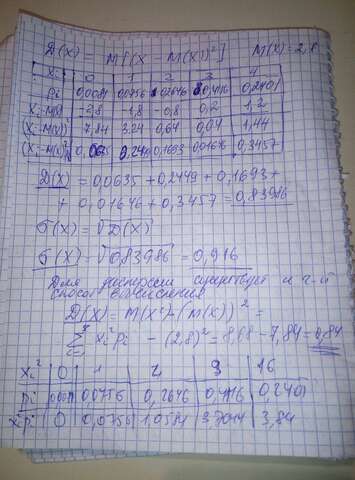 D(X) = M[(X - M(X))²] M(X)=2,8
xi 0 1 2 3 4
pi 0,0081 0,0756 0,2646 0,4116 0,2401
xi-M(X) -2,8 -1,8 -0,8 0,2 1,2
(xi-M(X))² 7,84 3,24 0,64 0,04 1,44
0,0635 0,2449 0,1693 0,01646 0,3457
D(X) = 0,0635 + 0,2449 + 0,1693 +
+ 0,01646 + 0,3457 = 0,83986
σ(X) = √D(X)
σ(X) = √0,83986 = 0,916
Для дисперсии существует и
способ вычисления
D(X) = M(X²) - (M(X))² =
xi² pi - (2,8)² = 8,68 - 7,84 = 0,84
xi² 0 1 16
pi 0,0081 0,0756 0,2646 0,4116 0,2401
0 0,0756 1,0584 3,7044 3,84